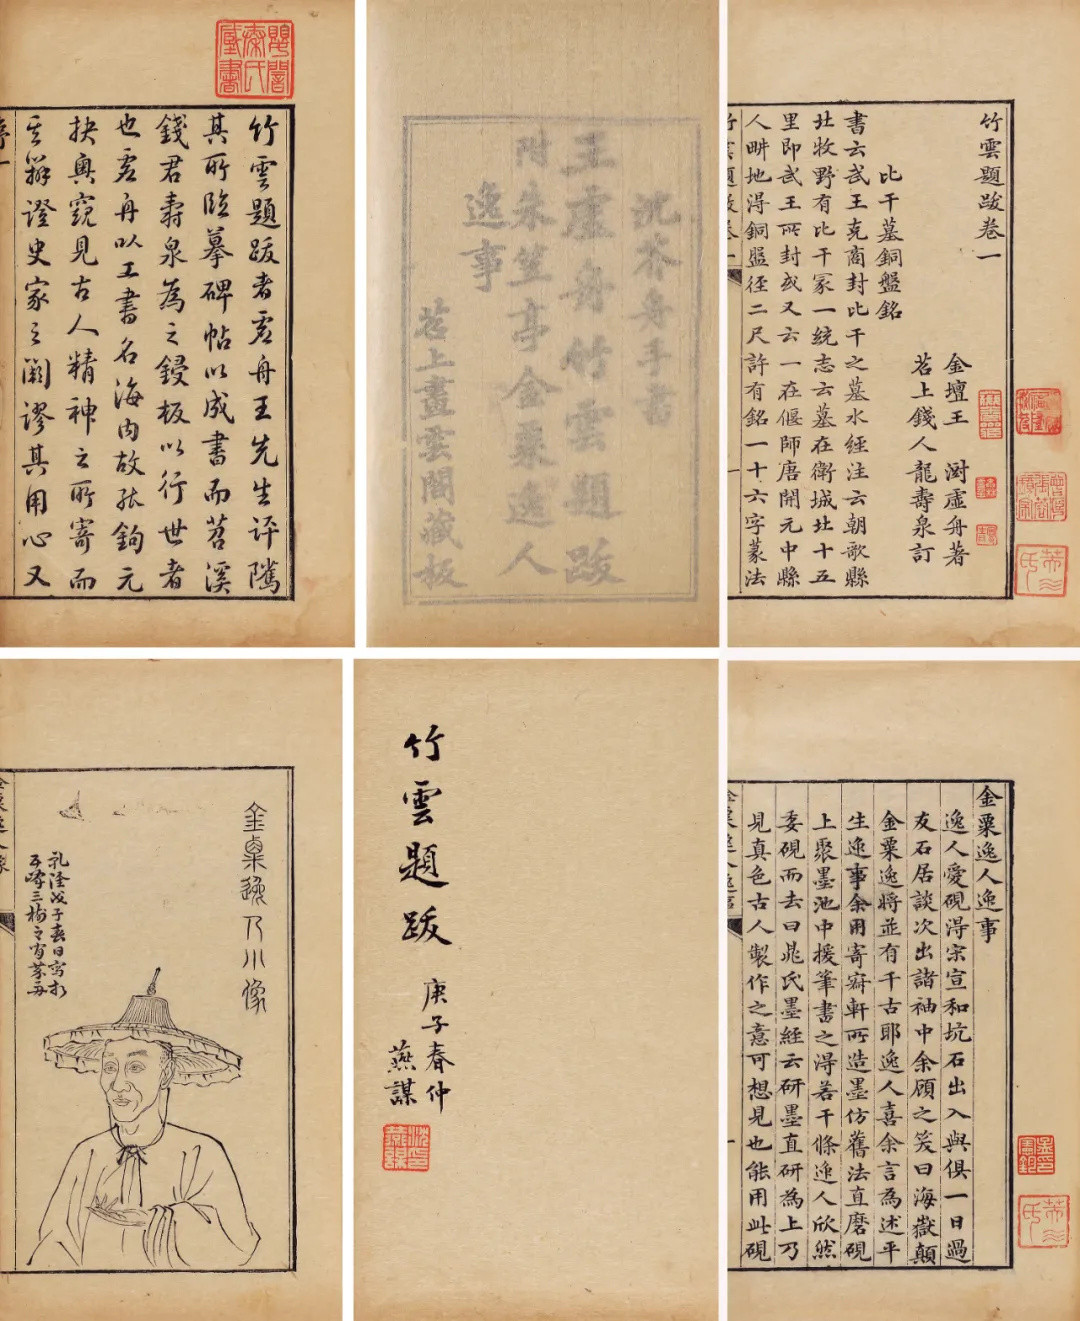 竹雲題跋者虛舟王先生評騭
其所臨摹碑帖以成書而苕溪
錢君壽泉為之鋟板以行世者
也虛舟以工書名海內故能鉤元
抉奧窺見古人精神之所寄而
其辨證史家之闕謬其用心又
沈芥舟手書
王虛舟竹雲題跋
附朱笠亭金粟逸人
逸事
苕上畫雲閣藏板
竹雲題跋卷一
金壇王 澍虛舟著
苕上錢人龍壽泉訂
比干墓銅盤銘
書云武王克商封比干之墓水經注云朝歌縣
北牧野有比干冢一統志云墓在衛城北十五
里即武王所封或又云一在偃師唐開元中縣
人畊地得銅盤徑二尺許有銘一十六字篆法
竹雲題跋卷一
金粟逸人小像
竹雲題跋
庚子春仲
燕謀
金粟逸人逸事
逸人愛硯得宗宣和坑石出入與俱一日過
友石居談次出諸袖中余顧之笑曰海嶽顛
金粟逸將並有千古耶逸人喜余言為述平
生逸事余用寄齋軒所造墨仿舊法直磨硯
上聚墨池中援筆書之得若干條逸人欣然
委硯而去曰晁氏墨經云研墨直研為上乃
見真色古人製作之意可想見也能用此硯
金粟逸人逸事